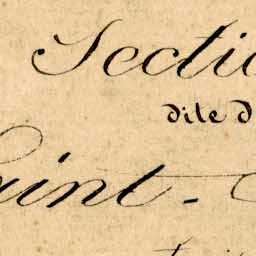 Sectio
dite d
aint-